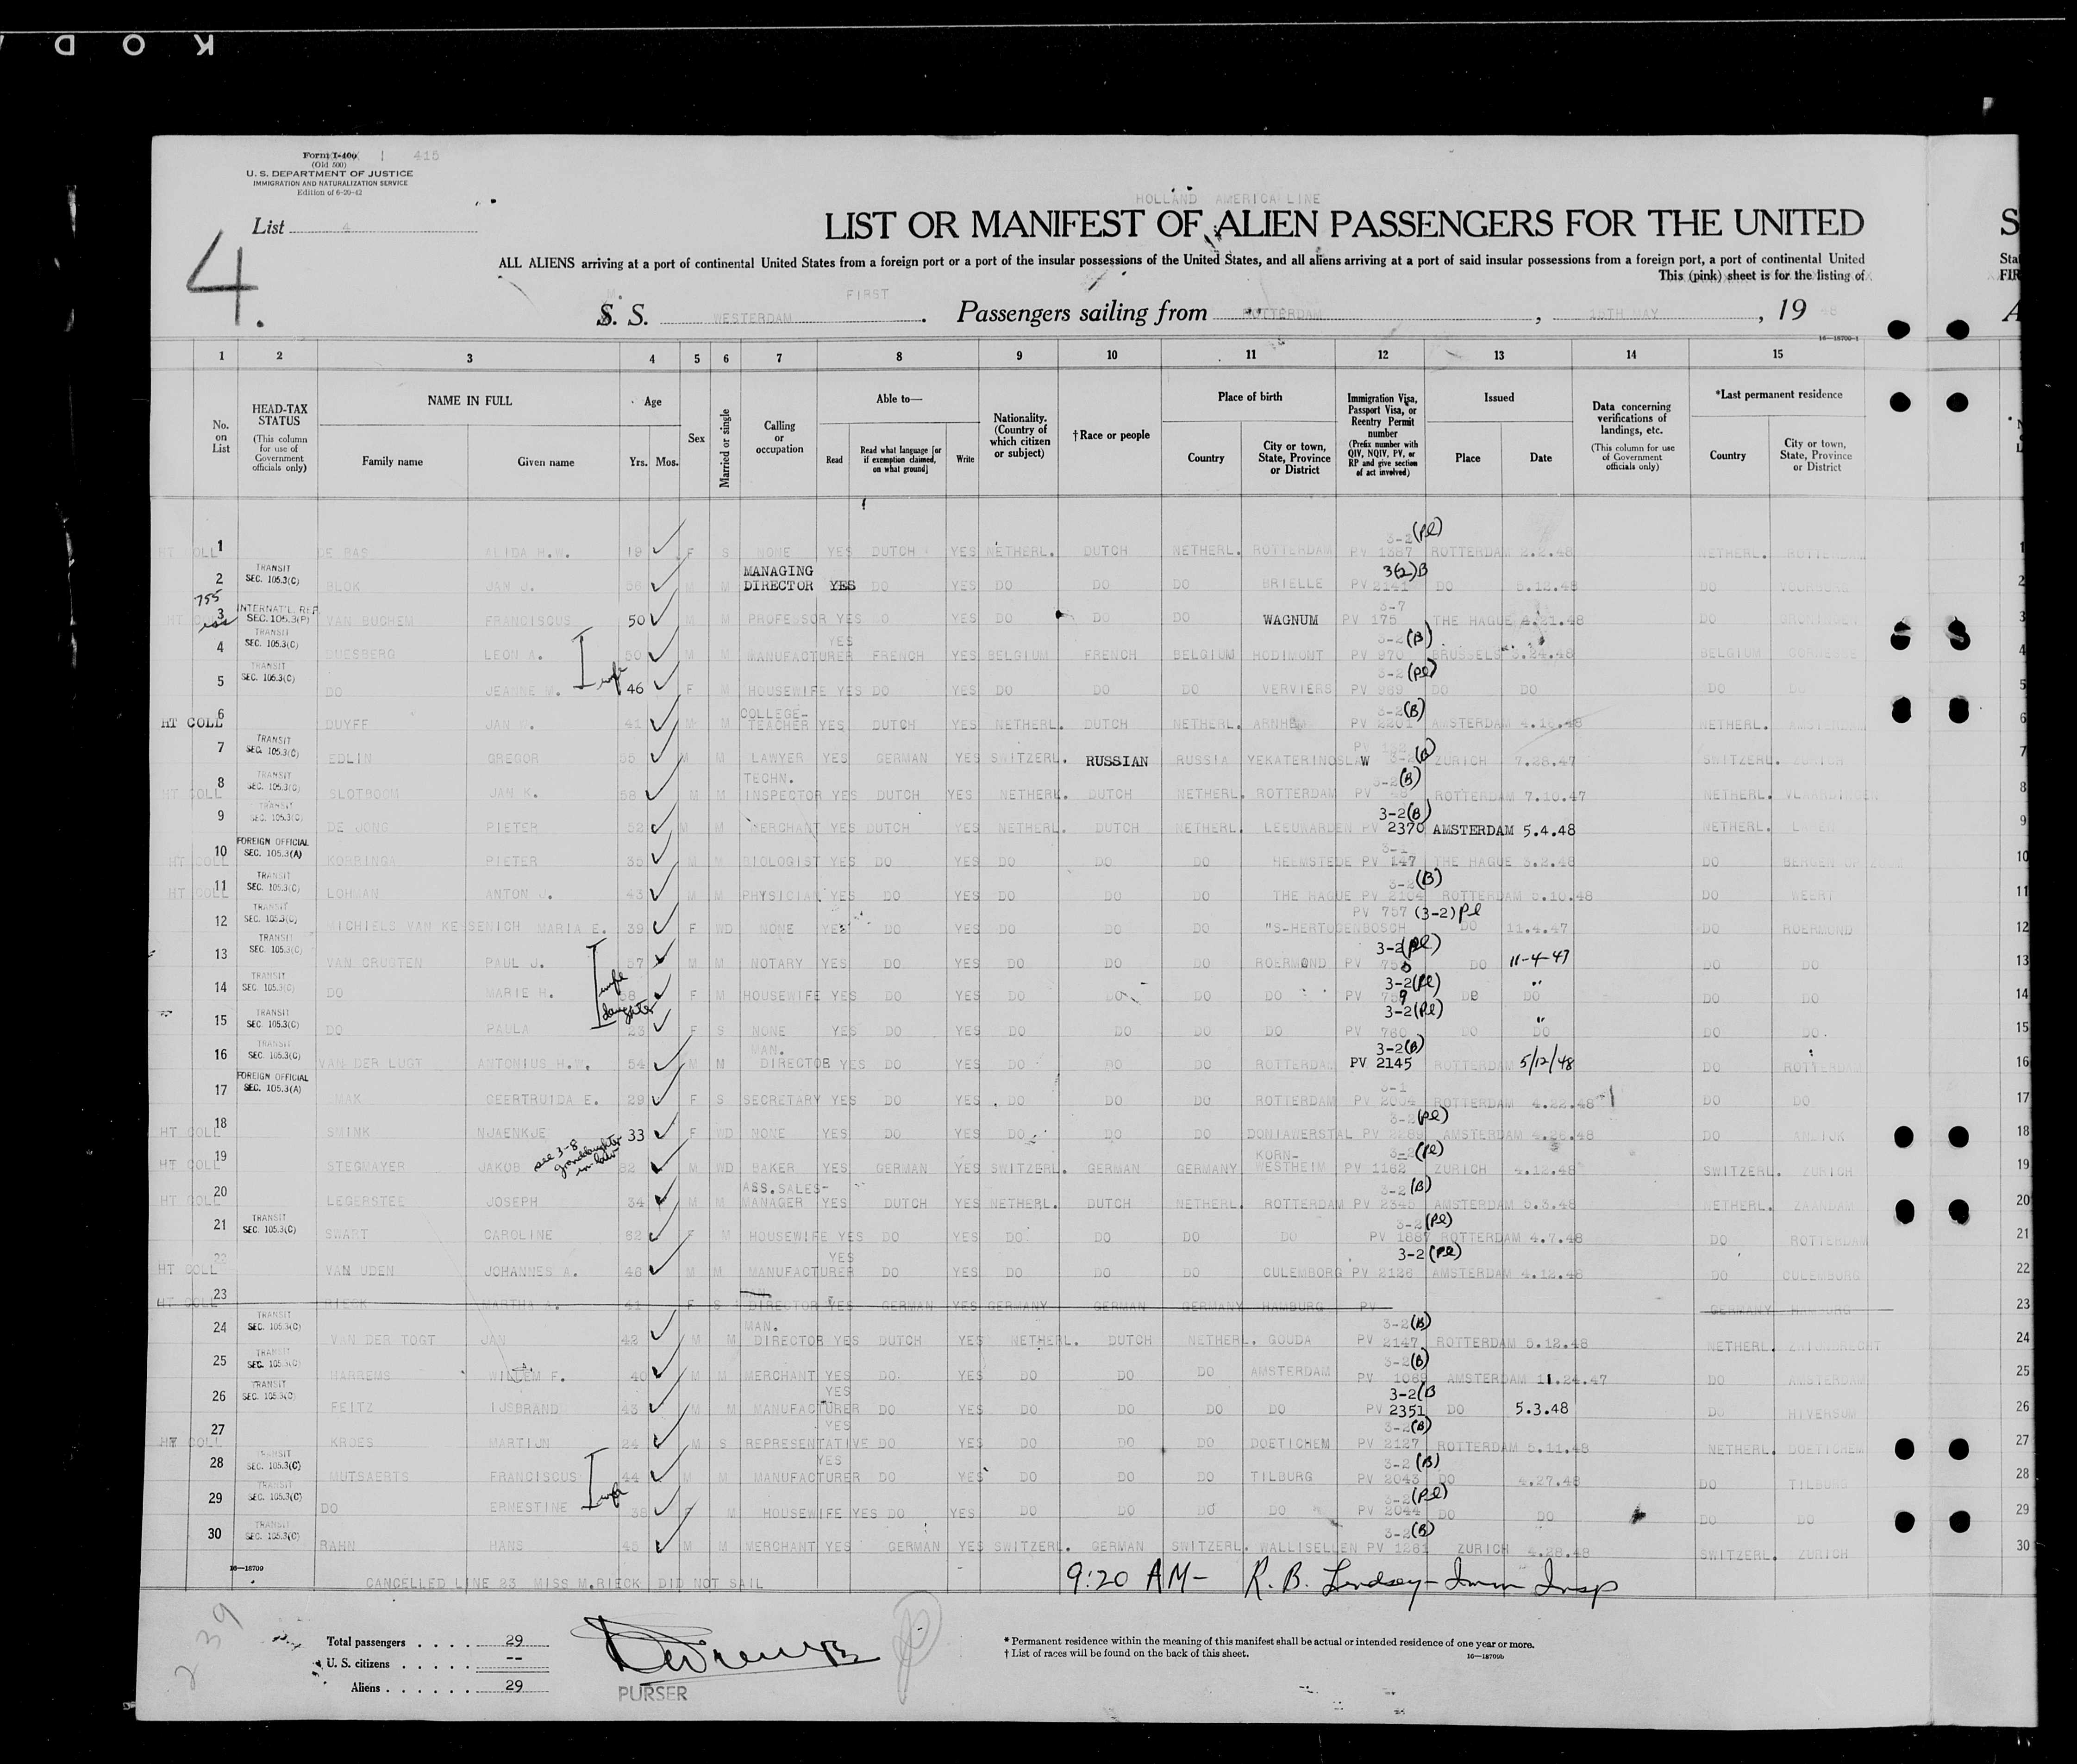 K O D
Form I-400 | 415
(Old 500)
U. S. DEPARTMENT OF JUSTICE
IMMIGRATION AND NATURALIZATION SERVICE
Edition of 6-20-42
HOLLAND AMERICA LINE
List 4
4.
LIST OR MANIFEST OF ALIEN PASSENGERS FOR THE UNITED
ALL ALIENS arriving at a port of continental United States from a foreign port or a port of the insular possessions of the United States, and all aliens arriving at a port of said insular possessions from a foreign port, a port of continental United
This (pink) sheet is for the listing of
FIRST
S. S. WESTERDAM . Passengers sailing from ROTTERDAM , 15TH MAY , 19 48
16—18709-1
1 2 3 4 5 6 7 8 9 10 11 12 13 14 15
No. on List
HEAD-TAX STATUS (This column for use of Government officials only)
NAME IN FULL Family name Given name
Age Yrs. Mos.
Sex
Married or single
Calling or occupation
Able to— Read Read what language [or if exemption claimed, on what ground] Write
Nationality. (Country of which citizen or subject)
†Race or people
Place of birth Country City or town, State, Province or District
Immigration Visa, Passport Visa, or Reentry Permit number (Prefix number with QIV, NQIV, PV, or RP and give section of act involved)
Issued Place Date
Data concerning verifications of landings, etc. (This column for use of Government officials only)
*Last permanent residence Country City or town, State, Province or District
HT COLL 1 DE BAS ALIDA H.W. 19 F S NONE YES DUTCH YES NETHERL. DUTCH NETHERL. ROTTERDAM 3-2 (Pl) PV 1387 ROTTERDAM 2.2.48 NETHERL. ROTTERDAM 1
2 TRANSIT SEC. 105.3(C) BLOK JAN J. 56 M M MANAGING DIRECTOR YES DO YES DO DO DO BRIELLE 3(2)B PV 2141 DO 5.12.48 DO VOORBURG 2
755
3 INTERNAT'L. REP. SEC. 105.3(P) VAN BUCHEM FRANCISCUS 50 M M PROFESSOR YES DO YES DO DO DO WAGNUM 3-7 PV 175 THE HAGUE 4.21.48 DO GRONINGEN 3
4 TRANSIT SEC. 105.3(C) DUESBERG LEON A. 50 M M MANUFACTURER YES FRENCH YES BELGIUM FRENCH BELGIUM HODIMONT 3-2 (B) PV 970 BRUSSELS 3.24.48 BELGIUM CORNESSE 4
5 TRANSIT SEC. 105.3(C) DO JEANNE M. wife 46 F M HOUSEWIFE YES DO YES DO DO DO VERVIERS 3-2 (Pl) PV 969 DO DO DO DO 5
HT COLL 6 DUYFF JAN W. 41 M M COLLEGE-TEACHER YES DUTCH YES NETHERL. DUTCH NETHERL. ARNHEM 3-2 (B) PV 2201 AMSTERDAM 4.16.48 NETHERL. AMSTERDAM 6
7 TRANSIT SEC. 105.3(C) EDLIN GREGOR 55 M M LAWYER YES GERMAN YES SWITZERL. RUSSIAN RUSSIA YEKATERINOSLAW 3-2 (B) ZURICH 7.28.47 SWITZERL. ZURICH 7
HT COLL 8 TRANSIT SEC. 105.3(C) SLOTBOOM JAN K. 58 M M TECHN. INSPECTOR YES DUTCH YES NETHERL. DUTCH NETHERL. ROTTERDAM 3-2 (B) PV ROTTERDAM 7.10.47 NETHERL. VLAARDINGEN 8
9 TRANSIT SEC. 105.3(C) DE JONG PIETER 52 M M MERCHANT YES DUTCH YES NETHERL. DUTCH NETHERL. LEEUWARDEN 3-2 (B) PV 2370 AMSTERDAM 5.4.48 NETHERL. 9
HT COLL 10 FOREIGN OFFICIAL SEC. 105.3(A) KORRINGA PIETER 35 M M BIOLOGIST YES DO YES DO DO DO HEEMSTEDE 3-1 PV 147 THE HAGUE 3.2.48 DO BERGEN OP ZOOM 10
HT COLL 11 TRANSIT SEC. 105.3(C) LOHMAN ANTON J. 43 M M PHYSICIAN YES DO YES DO DO DO THE HAGUE 3-2 (B) PV 2104 ROTTERDAM 5.10.48 DO WEERT 11
12 TRANSIT SEC. 105.3(C) MICHIELS VAN KESSENICH MARIA E. 39 F WD NONE YES DO YES DO DO DO "S-HERTOGENBOSCH PV 757 (3-2) Pl DO 11.4.47 DO ROERMOND 12
13 TRANSIT SEC. 105.3(C) VAN CRUGTEN PAUL J. 57 M M NOTARY YES DO YES DO DO DO ROERMOND 3-2 (Pl) PV 758 DO 11-4-47 DO DO 13
14 TRANSIT SEC. 105.3(C) DO MARIE H. wife 58 F M HOUSEWIFE YES DO YES DO DO DO DO 3-2 (Pl) PV 759 DO DO " DO DO 14
15 TRANSIT SEC. 105.3(C) DO PAULA daughter 23 F S NONE YES DO YES DO DO DO DO 3-2 (Pl) PV 760 DO DO " DO DO. 15
16 TRANSIT SEC. 105.3(C) VAN DER LUGT ANTONIUS H.W. 54 M M MAN. DIRECTOR YES DO YES DO DO DO ROTTERDAM 3-2 (B) PV 2145 ROTTERDAM 5/12/48 DO ROTTERDAM 16
17 FOREIGN OFFICIAL SEC. 105.3(A) MAK GEERTRUIDA E. 29 F S SECRETARY YES DO YES DO DO DO ROTTERDAM 3-1 PV 2004 ROTTERDAM 4.22.48 DO DO 17
HT COLL 18 SMINK NJAENKJE 33 F WD NONE YES DO YES DO DO DO DONIAWERSTAL 3-2 (Pl) PV AMSTERDAM 4.28.48 DO 18
HT COLL 19 STEGMAYER JAKOB see 3-8 granddaughter in-law 82 M WD BAKER YES GERMAN YES SWITZERL. GERMAN GERMANY KORN-WESTHEIM 3-2 (Pl) PV 1162 ZURICH 4.12.48 SWITZERL. ZURICH 19
HT COLL 20 LEGERSTEE JOSEPH 34 M M ASS. SALES-MANAGER YES DUTCH YES NETHERL. DUTCH NETHERL. ROTTERDAM 3-2 (B) PV 2345 AMSTERDAM 5.3.48 NETHERL. ZAANDAM 20
21 TRANSIT SEC. 105.3(C) SWART CAROLINE 62 F M HOUSEWIFE YES DO YES DO DO DO DO 3-2 (Pl) PV 1887 ROTTERDAM 4.7.48 DO ROTTERDAM 21
HT COLL 22 VAN UDEN JOHANNES A. 48 M M MANUFACTURER YES DO YES DO DO DO CULEMBORG 3-2 (Pl) PV 2126 AMSTERDAM 4.12.48 DO CULEMBORG 22
HT COLL 23 RIECK MARTHA A. 41 F S DIRECTOR YES GERMAN YES GERMANY GERMAN GERMANY HAMBURG PV GERMANY HAMBURG 23
24 TRANSIT SEC. 105.3(C) VAN DER TOGT JAN 42 M M MAN. DIRECTOR YES DUTCH YES NETHERL. DUTCH NETHERL. GOUDA 3-2 (B) PV 2147 ROTTERDAM 5.12.48 NETHERL. ZWIJNDRECHT 24
25 TRANSIT SEC. 105.3(C) HARREMS WILLEM F. 40 M M MERCHANT YES DO. YES DO DO DO AMSTERDAM 3-2 (B) PV 1069 AMSTERDAM 11.24.47 DO AMSTERDAM 25
26 TRANSIT SEC. 105.3(C) FEITZ IJSBRAND 43 M M MANUFACTURER YES DO YES DO DO DO DO 3-2 (B PV 2351 DO 5.3.48 DO HIVERSUM 26
HT COLL 27 KROES MARTIJN 24 M S REPRESENTATIVE YES DO YES DO DO DO DOETICHEM 3-2 (B) PV 2127 ROTTERDAM 5.11.48 NETHERL. DOETICHEM 27
28 TRANSIT SEC. 105.3(C) MUTSAERTS FRANCISCUS 44 M M MANUFACTURER YES DO YES DO DO DO TILBURG 3-2 (B) PV 2043 DO 4.27.48 DO TILBURG 28
29 TRANSIT SEC. 105.3(C) DO ERNESTINE wife 38 F M HOUSEWIFE YES DO YES DO DO DO DO 3-2 (Pl) PV 2044 DO DO DO DO 29
30 TRANSIT SEC. 105.3(C) RAHN HANS 45 M M MERCHANT YES GERMAN YES SWITZERL. GERMAN SWITZERL. WALLISELLEN 3-2 (B) PV 1261 ZURICH 4.28.48 SWITZERL. ZURICH 30
16—18709
CANCELLED LINE 23 MISS M.RIECK DID NOT SAIL
9:20 AM- R. B. Lindsey - Imm Insp
239
Total passengers . . . . 29
U. S. citizens . . . . . --
Aliens . . . . . . 29
PURSER
* Permanent residence within the meaning of this manifest shall be actual or intended residence of one year or more.
† List of races will be found on the back of this sheet.
16—18709b